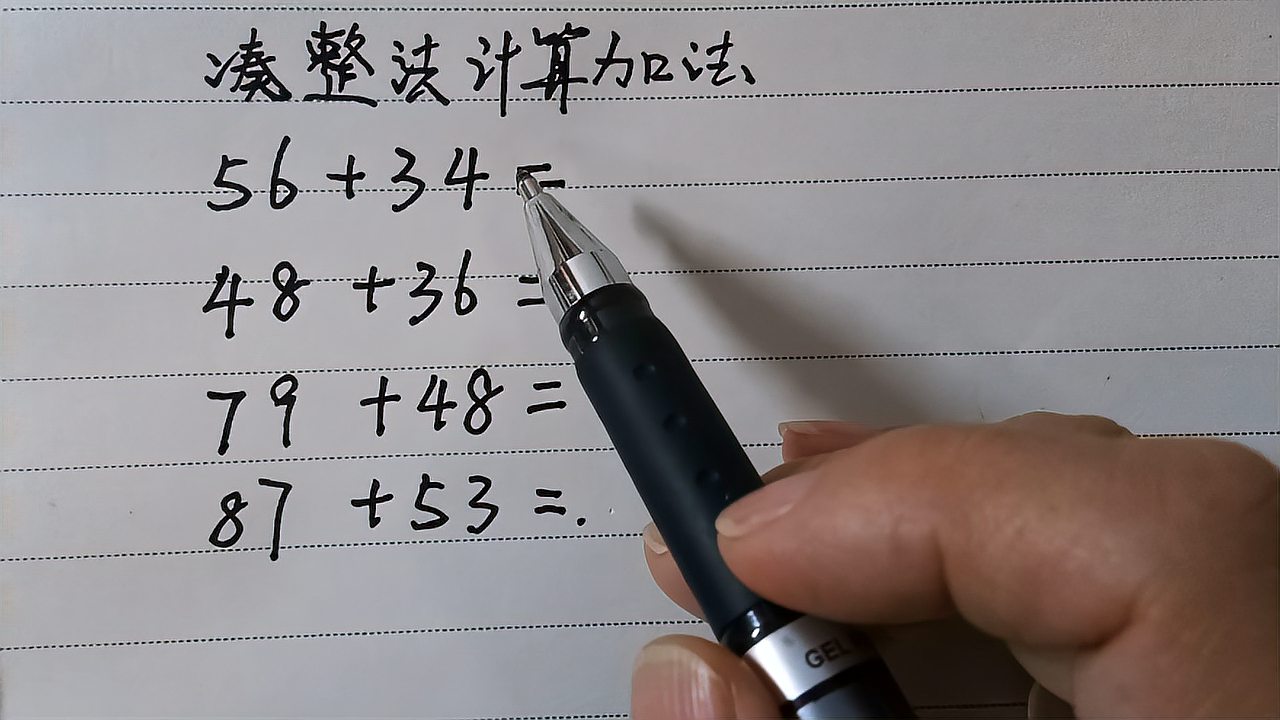 凑整法计算加法
56+34=
48+36=
79+48=
87+53=.
GEL